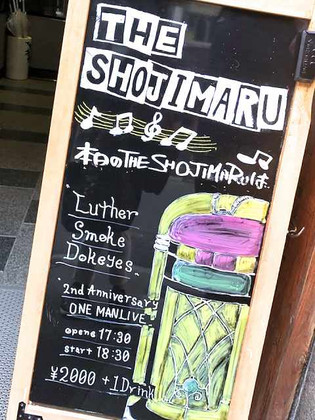 THE
SHOJIMARU
本日のTHE SHOJIMARUは
"Luther
Smoke
Dokeyes.
"2nd Anniversary
ONE MANLIVE"
opens 17:30
start 18:30
¥2000 +1Drink